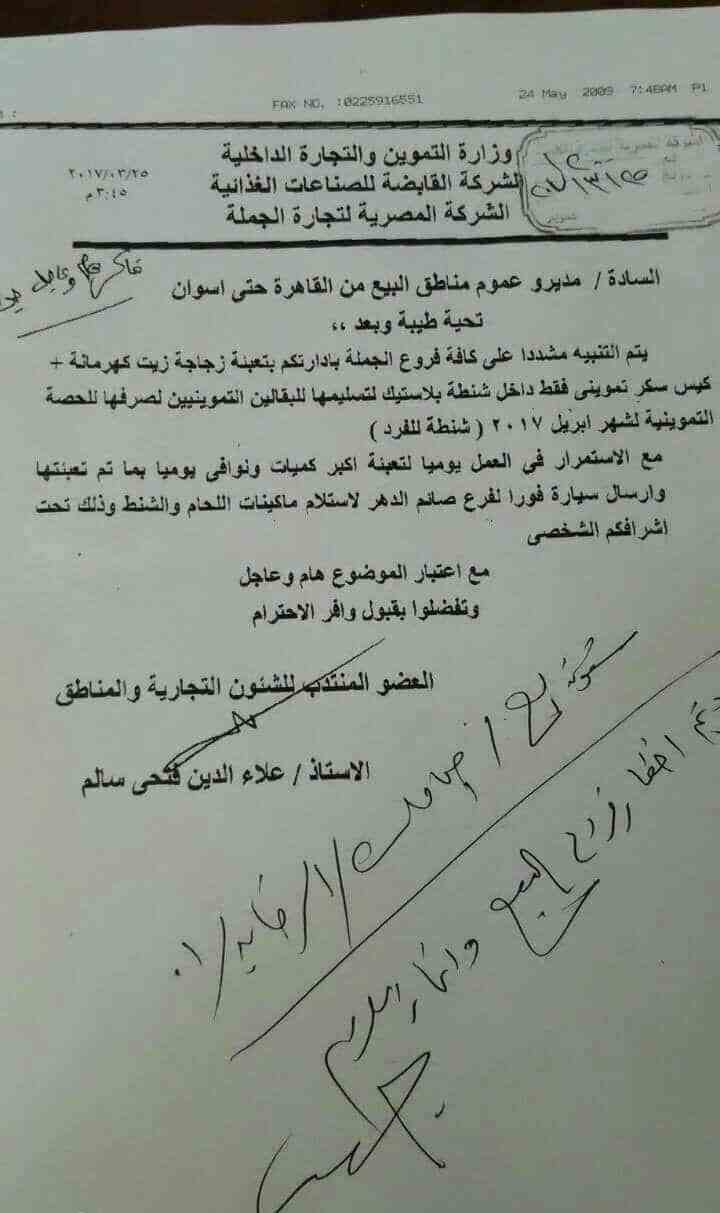 FAX NO. :0225916551
24 May 2009 7:48AM P1
وزارة التموين والتجارة الداخلية
الشركة القابضة للصناعات الغذائية
الشركة المصرية لتجارة الجملة
٢٠١٧/٠٣/٢٥
٣:٤٥م
فاكس هام وعاجل
السادة / مديرو عموم مناطق البيع من القاهرة حتى اسوان
تحية طيبة وبعد ،،
يتم التنبيه مشددا على كافة فروع الجملة بادارتكم بتعبئة زجاجة زيت كهرمانة +
كيس سكر تموينى فقط داخل شنطة بلاستيك لتسليمها للبقالين التموينيين لصرفها للحصة
التموينية لشهر ابريل ٢٠١٧ ( شنطة للفرد )
مع الاستمرار في العمل يوميا لتعبئة اكبر كميات ونوافى يوميا بما تم تعبئتها
وارسال سيارة فورا لفرع صائم الدهر لاستلام ماكينات اللحام والشنط وذلك تحت
اشرافكم الشخصى
مع اعتبار الموضوع هام وعاجل
وتفضلوا بقبول وافر الاحترام
العضو المنتدب للشئون التجارية والمناطق
الاستاذ / علاء الدين فتحى سالم
البيع